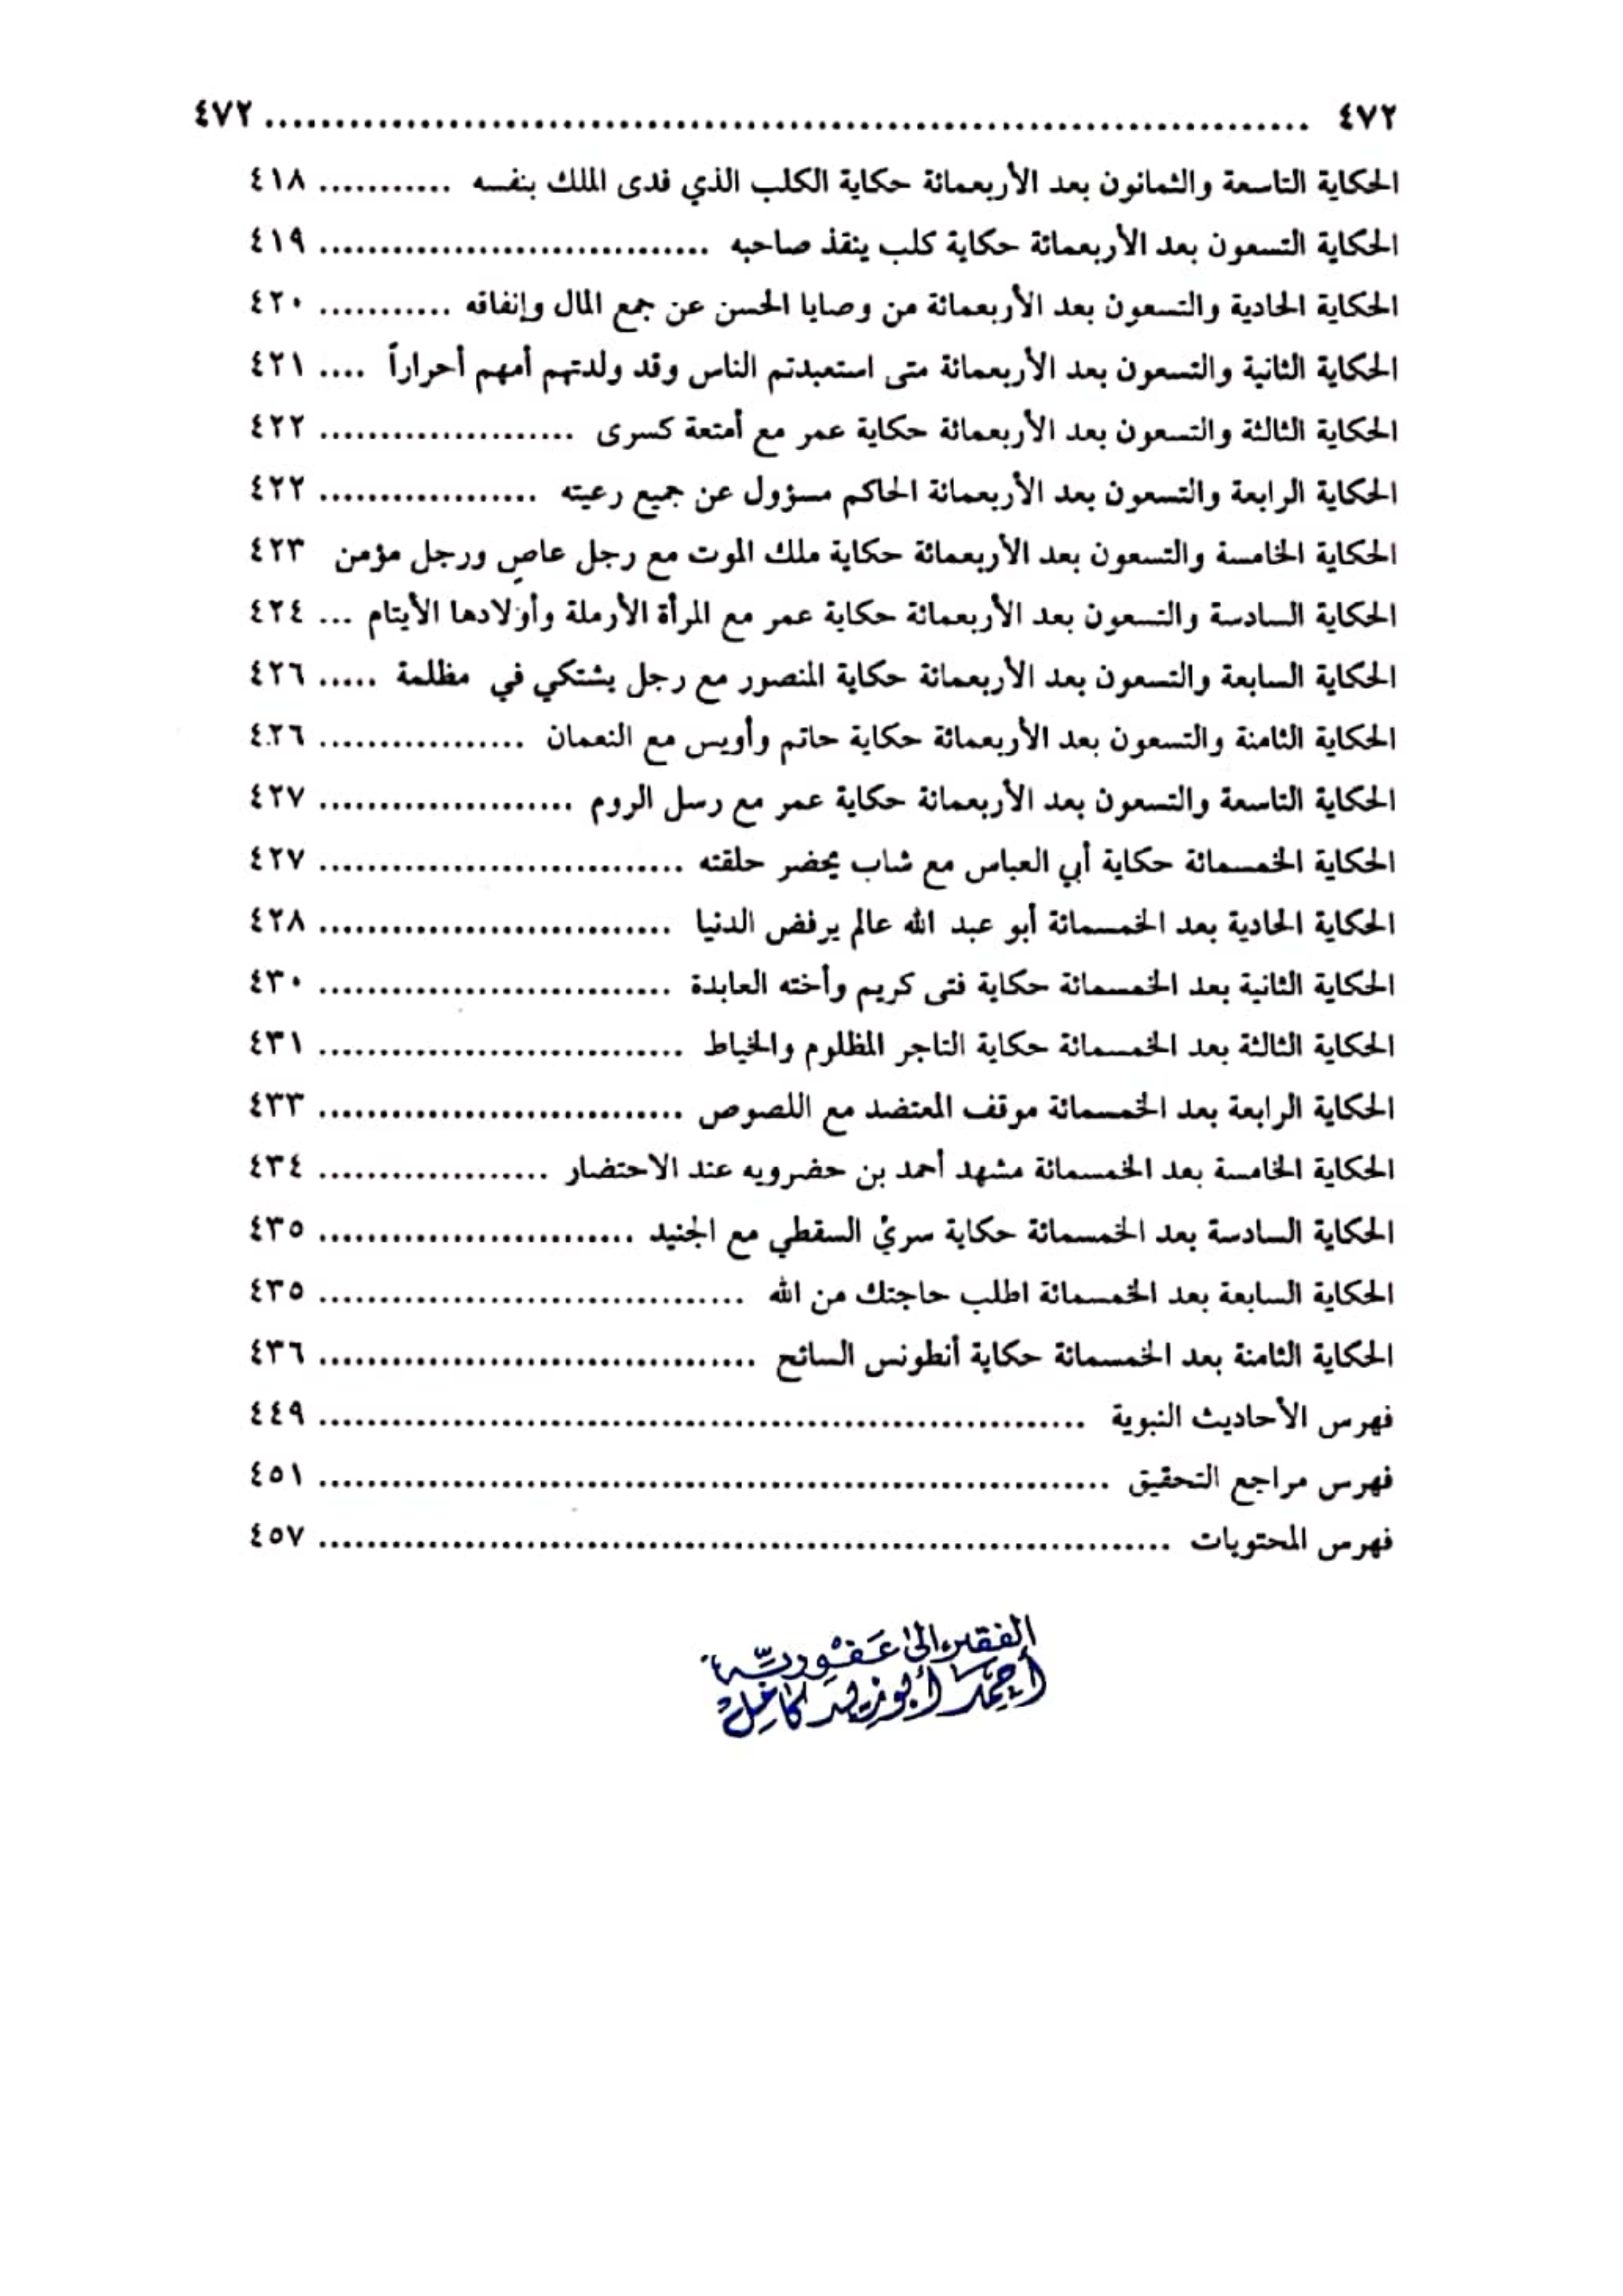 ٤٧٢ ........................................................................... ٤٧٢
الحكاية التاسعة والثمانون بعد الأربعمائة حكاية الكلب الذي فدى الملك بنفسه ........... ٤١٨
الحكاية التسعون بعد الأربعمائة حكاية كلب ينقذ صاحبه ................................ ٤١٩
الحكاية الحادية والتسعون بعد الأربعمائة من وصايا الحسن عن جمع المال وإنفاقه ........... ٤٢٠
الحكاية الثانية والتسعون بعد الأربعمائة متى استعبدتم الناس وقد ولدتهم أمهم أحراراً .... ٤٢١
الحكاية الثالثة والتسعون بعد الأربعمائة حكاية عمر مع أمتعة كسرى ..................... ٤٢٢
الحكاية الرابعة والتسعون بعد الأربعمائة الحاكم مسؤول عن جميع رعيته .................. ٤٢٢
الحكاية الخامسة والتسعون بعد الأربعمائة حكاية ملك الموت مع رجل عاصٍ ورجل مؤمن ٤٢٣
الحكاية السادسة والتسعون بعد الأربعمائة حكاية عمر مع المرأة الأرملة وأولادها الأيتام ... ٤٢٤
الحكاية السابعة والتسعون بعد الأربعمائة حكاية المنصور مع رجل يشتكي في مظلمة ..... ٤٢٦
الحكاية الثامنة والتسعون بعد الأربعمائة حكاية حاتم وأويس مع النعمان ................. ٤٢٦
الحكاية التاسعة والتسعون بعد الأربعمائة حكاية عمر مع رسل الروم ..................... ٤٢٧
الحكاية الخمسمائة حكاية أبي العباس مع شاب يحضر حلقته .............................. ٤٢٧
الحكاية الحادية بعد الخمسمائة أبو عبد الله عالم يرفض الدنيا ............................. ٤٢٨
الحكاية الثانية بعد الخمسمائة حكاية فتى كريم وأخته العابدة ............................. ٤٣٠
الحكاية الثالثة بعد الخمسمائة حكاية التاجر المظلوم والخياط .............................. ٤٣١
الحكاية الرابعة بعد الخمسمائة موقف المعتضد مع اللصوص .............................. ٤٣٣
الحكاية الخامسة بعد الخمسمائة مشهد أحمد بن حضرويه عند الاحتضار ................... ٤٣٤
الحكاية السادسة بعد الخمسمائة حكاية سريّ السقطي مع الجنيد .......................... ٤٣٥
الحكاية السابعة بعد الخمسمائة اطلب حاجتك من الله ................................... ٤٣٥
الحكاية الثامنة بعد الخمسمائة حكاية أنطونس السائح .................................... ٤٣٦
فهرس الأحاديث النبوية ............................................................... ٤٤٩
فهرس مراجع التحقيق ................................................................. ٤٥١
فهرس المحتويات ...................................................................... ٤٥٧
الفقير إلى عَفْوِ ربِّه
أحمد أبوزيد كامل